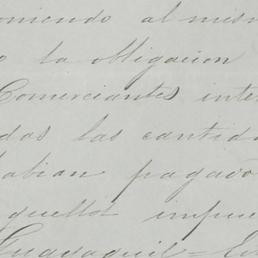 oniendo al mism
o la obligacion
Comerciantes inter
das las cantida
abian pagado
quellos impue
Guayaquil = En